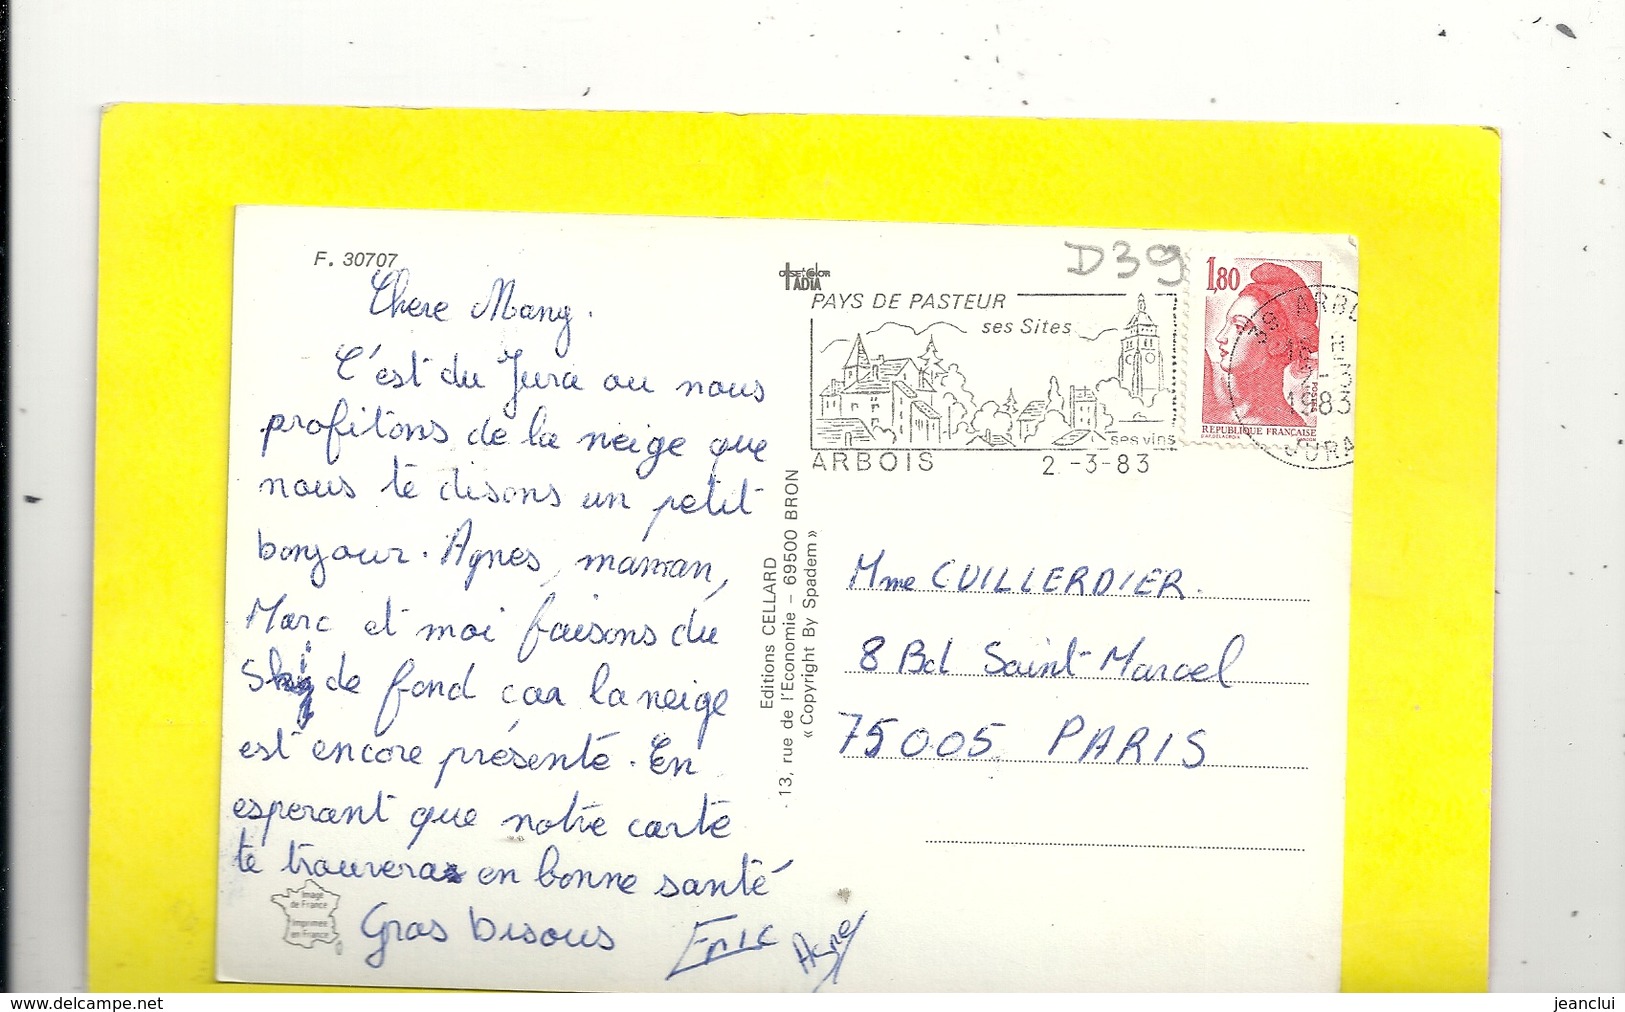 F. 30707
Chere Mang.
C'est du Jura ou nous
profitons de la neige que
nous te disons un petit
bonjour. Agnes, maman,
Marc et moi faisons du
Ski de fond car la neige
est encore présente. En
esperant que notre carte
te trouvera en bonne santé
Gros bisous Eric Agnes
Image
de France
Imprimée
en France
Editions CELLARD
13, rue de l'Economie – 69500 BRON
« Copyright By Spadem »
TADIA
D39
PAYS DE PASTEUR
ses Sites
ses vins
ARBOIS 2 -3-83
1,80
POSTES
REPUBLIQUE FRANÇAISE
39 ARBO
1983
JURA
Mme CUILLERDIER.
8 Bd Saint-Marcel
75005 PARIS
delcampe.net
jeanclui